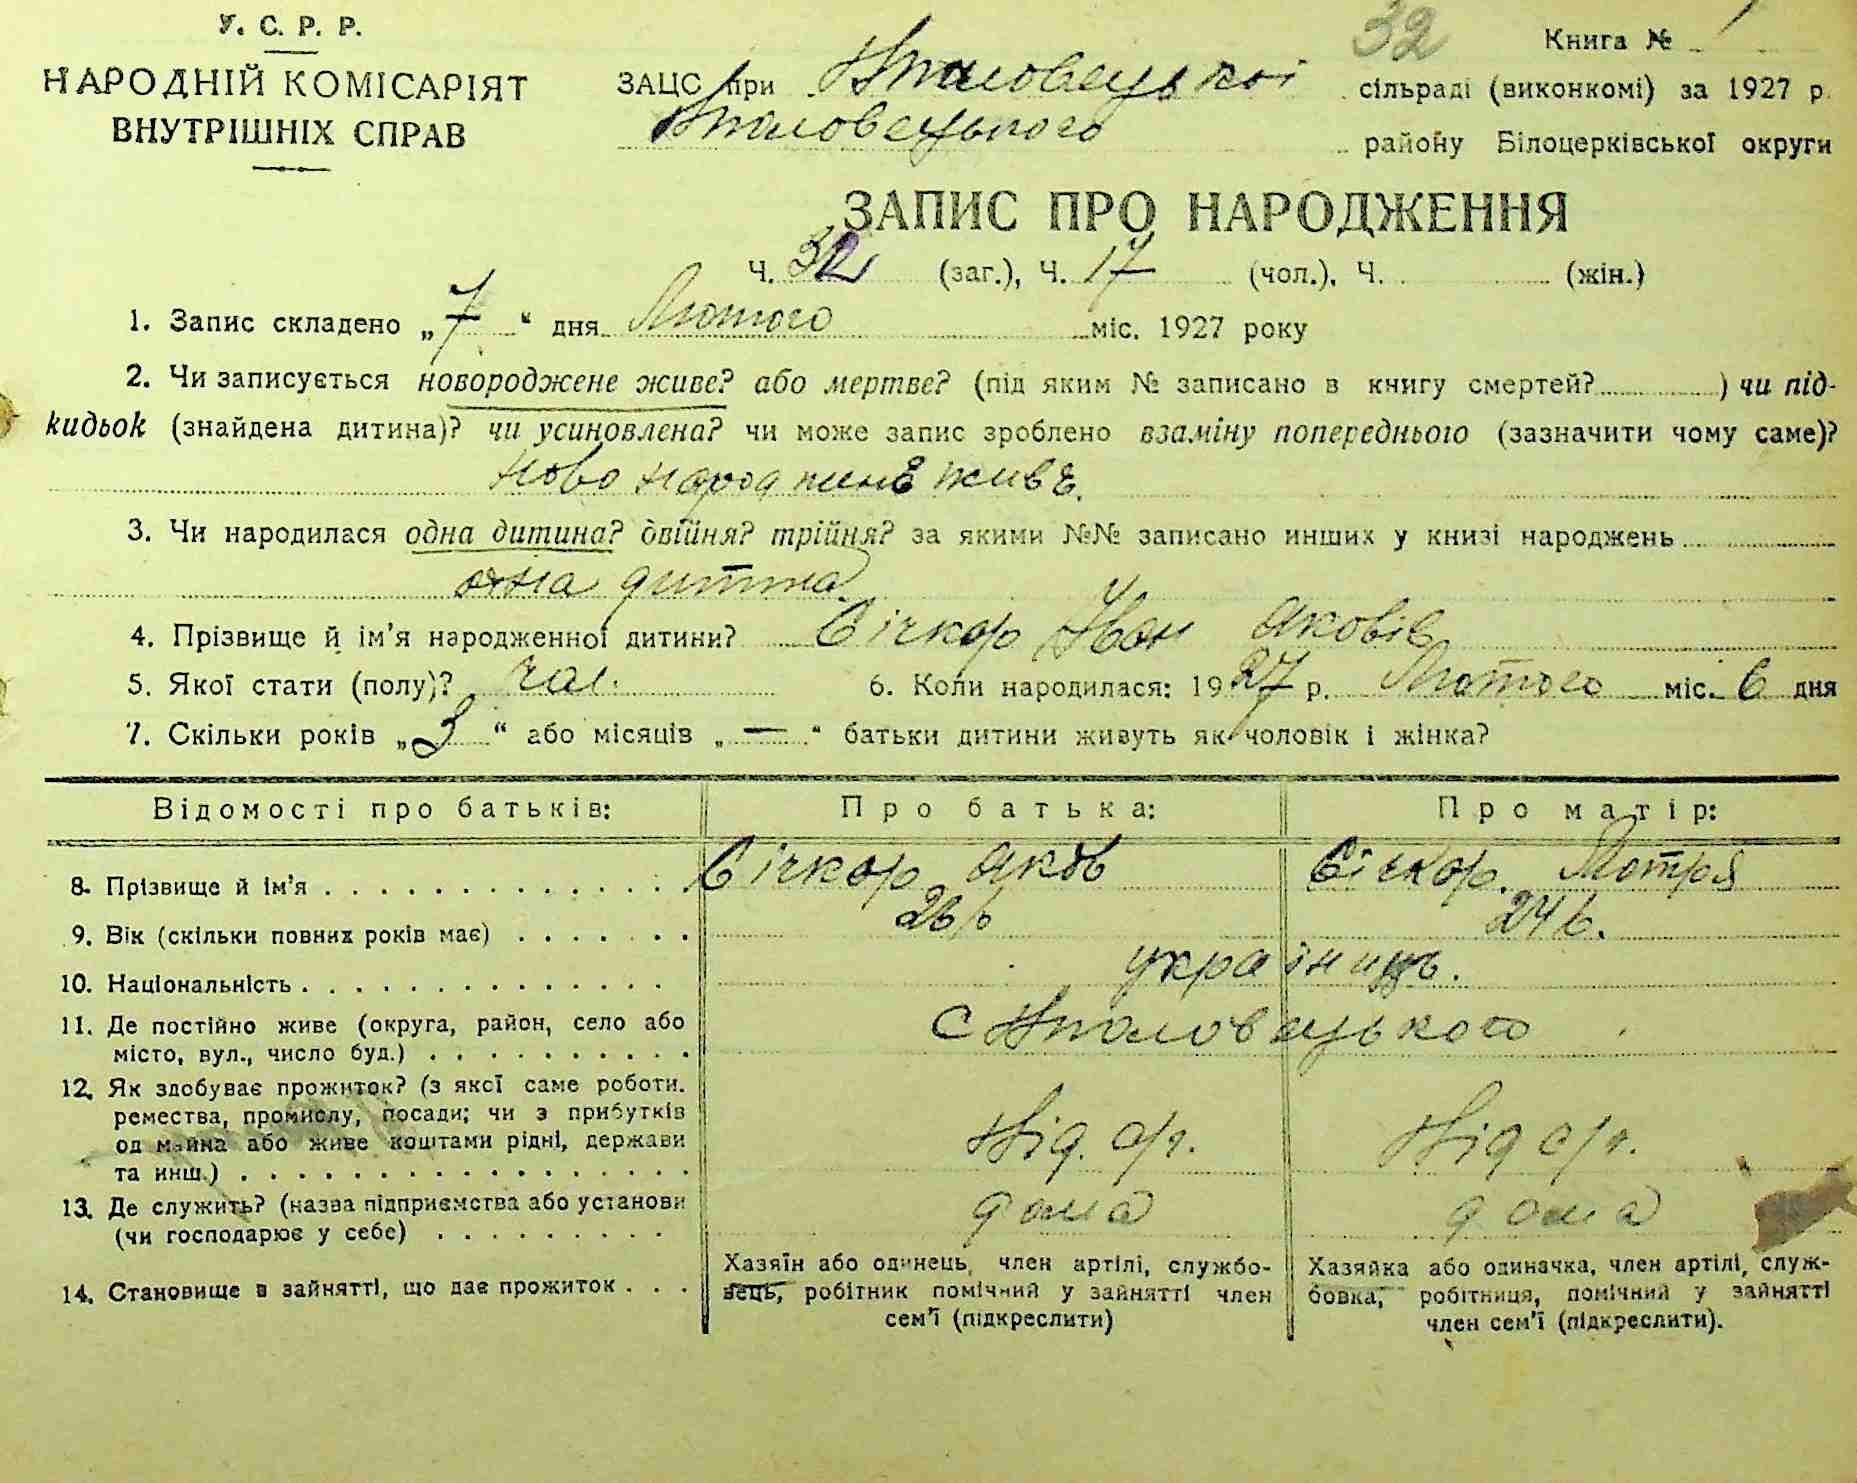 У. С. Р. Р.
НАРОДНІЙ КОМІСАРІЯТ
ВНУТРІШНІХ СПРАВ
32 Книга № 1
ЗАЦС при сільраді (виконкомі) за 1927 р.
району Білоцерківської округи
ЗАПИС ПРО НАРОДЖЕННЯ
Ч. 32 (заг.), Ч. 17 (чол.), Ч. (жін.)
1. Запис складено „7“ дня Лютого міс. 1927 року
2. Чи записується новороджене живе? або мертве? (під яким № записано в книгу смертей? ) чи під-
кидьок (знайдена дитина)? чи усиновлена? чи може запис зроблено взаміну попереднього (зазначити чому саме)?
3. Чи народилася одна дитина? двійня? трійня? за якими №№ записано инших у книзі народжень
одна дитина
4. Прізвище й ім'я народженної дитини? Січкар Іван Яковів
5. Якої стати (полу)? чол. 6. Коли народилася: 1927 р. Лютого міс. 6 дня
7. Скільки років „3“ або місяців „—“ батьки дитини живуть як чоловік і жінка?
Відомості про батьків: Про батька: Про матір:
8. Прізвище й ім'я Січкар Яков Січкар. Мотря
9. Вік (скільки повних років має) 26 24
10. Національність українць.
11. Де постійно живе (округа, район, село або
місто, вул., число буд.) с
12. Як здобуває прожиток? (з якої саме роботи.
ремества, промислу, посади; чи з прибутків
од майна або живе коштами рідні, держави
та инш.)
13. Де служить? (назва підприємства або установи
(чи господарює у себе) дома дома
14. Становище в зайнятті, що дає прожиток
Хазяїн або одинець, член артілі, службо-
вець, робітник помічний у зайнятті член
сем'ї (підкреслити)
Хазяйка або одиначка, член артілі, служ-
бовка, робітниця, помічний у зайнятті
член сем'ї (підкреслити).